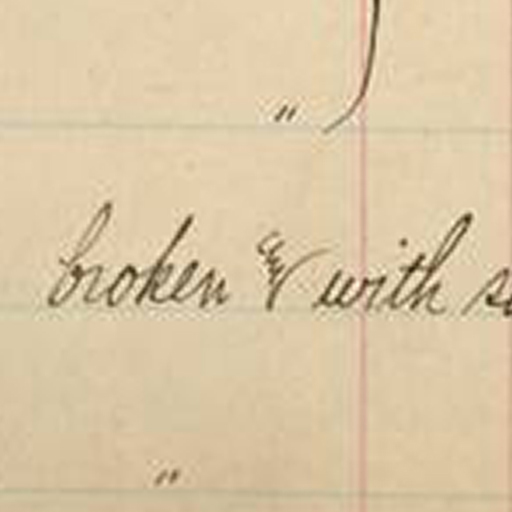 "
broken & with
"